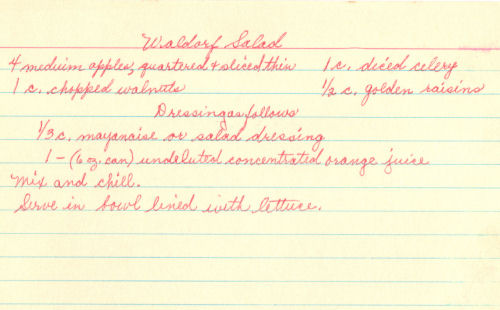 Waldorf Salad
4 medium apples, quartered & sliced thin 1 c. diced celery
1 c. chopped walnuts 1/2 c. golden raisins
Dressing as follows
1/3 c. mayanaise or salad dressing
1 - (6 oz. can) undeluted concentrated orange juice
Mix and chill.
Serve in bowl lined with lettuce.